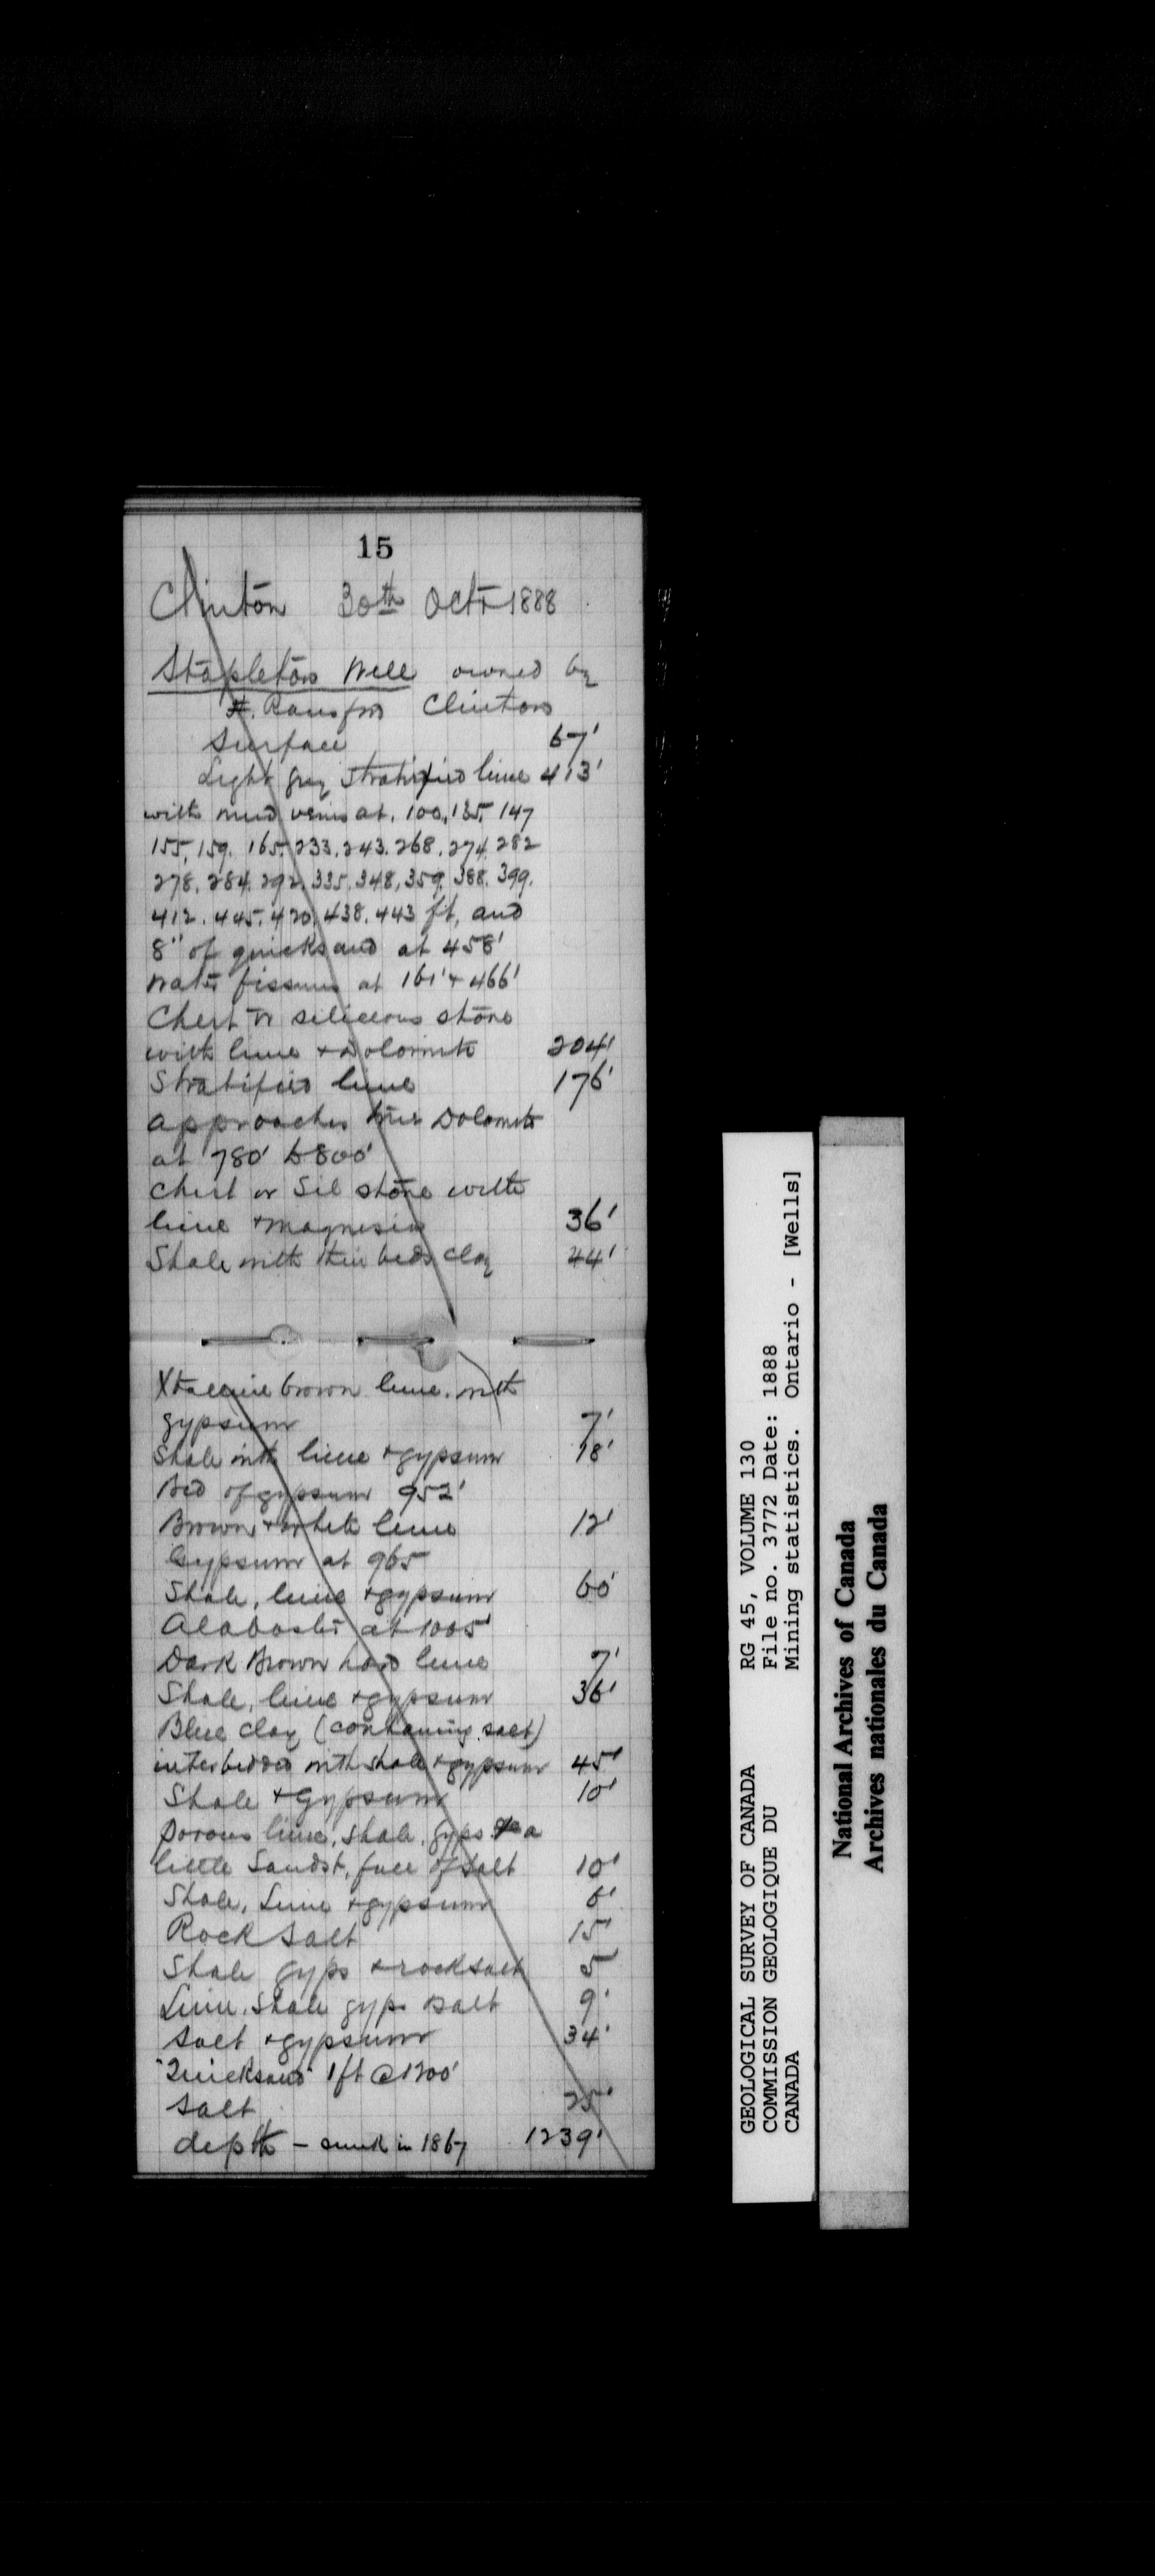 15
Clinton 30th Octr 1888
Stapleton Well owned by
H. Ransford Clinton
Surface 67'
Light grey stratified lime 413'
with mud veins at. 100, 135, 147
155, 159. 165. 233. 243. 268. 274. 282
278. 284. 292. 335. 348, 359. 388. 399.
412. 445. 420. 438. 443 ft, and
8" of quicksand at 458'
Water fissures at 161' + 466'
Chert or silicious stone
with lime + Dolomite 204'
Stratified lime 176'
approaches true Dolomite
at 780' to 800'
Chert or Sil stone with
lime + magnesia 36'
Shale with thin beds clay 44'
Xtalline brown lime. with
gypsum 7'
Shale with lime + gypsum 18'
Bed of gypsum 952'
Brown + white lime 12'
Gypsum at 965
Shale, lime + gypsum 60'
Alabaster at 1005'
Dark Brown hard lime 7'
Shale, lime + gypsum 36'
Blue clay (containing salt)
interbedded with shale + gypsum 45'
Shale + Gypsum 10'
Porous lime, shale, gyps + a
little Sandst, full of salt 10'
Shale, Lime + gypsum 6'
Rock Salt 15'
Shale gyps + rocksalt 5'
Lime. Shale gyps salt 9'
Salt + gypsum 34'
"Quicksand" 1 ft @ 1200'
Salt 25'
depth – sunk in 1867 1239'
GEOLOGICAL SURVEY OF CANADA RG 45, VOLUME 130
COMMISSION GEOLOGIQUE DU File no. 3772 Date: 1888
CANADA Mining statistics. Ontario - [Wells]
National Archives of Canada
Archives nationales du Canada